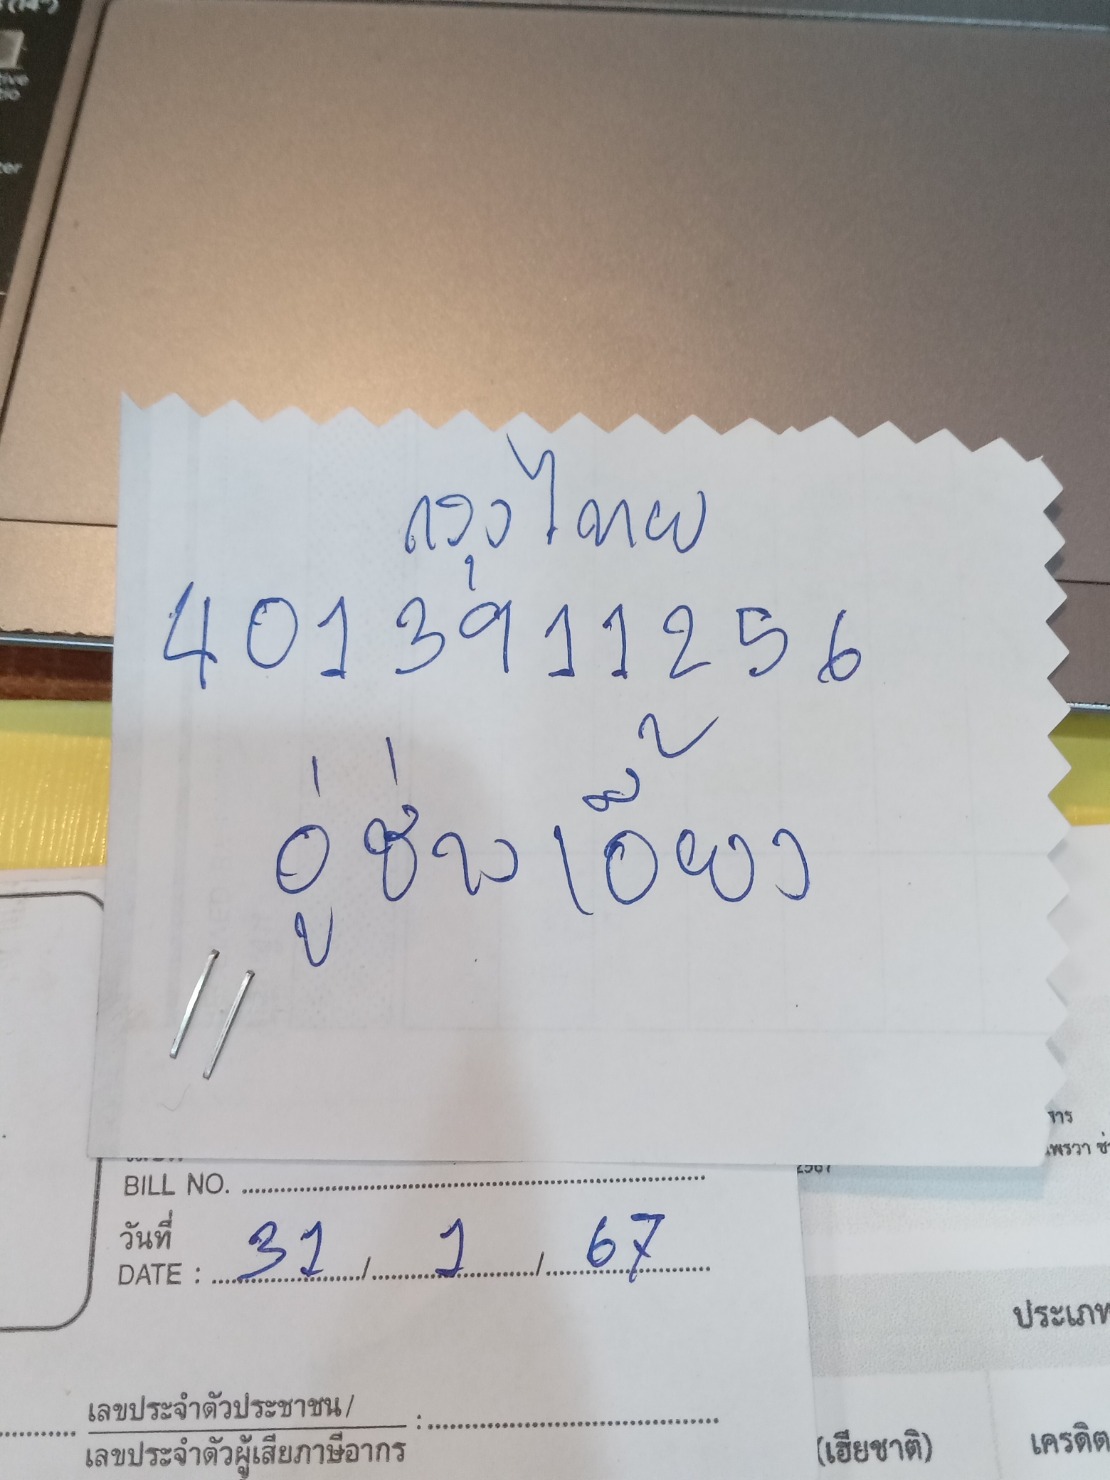 กรุงไทย
4013911256
อู่ช่างเอี้ยง
BILL NO.
วันที่
DATE : 31 / 1 / 67
2567
เลขประจำตัวประชาชน/
เลขประจำตัวผู้เสียภาษีอากร :
ประเภท
(เฮียชาติ)
เครดิต